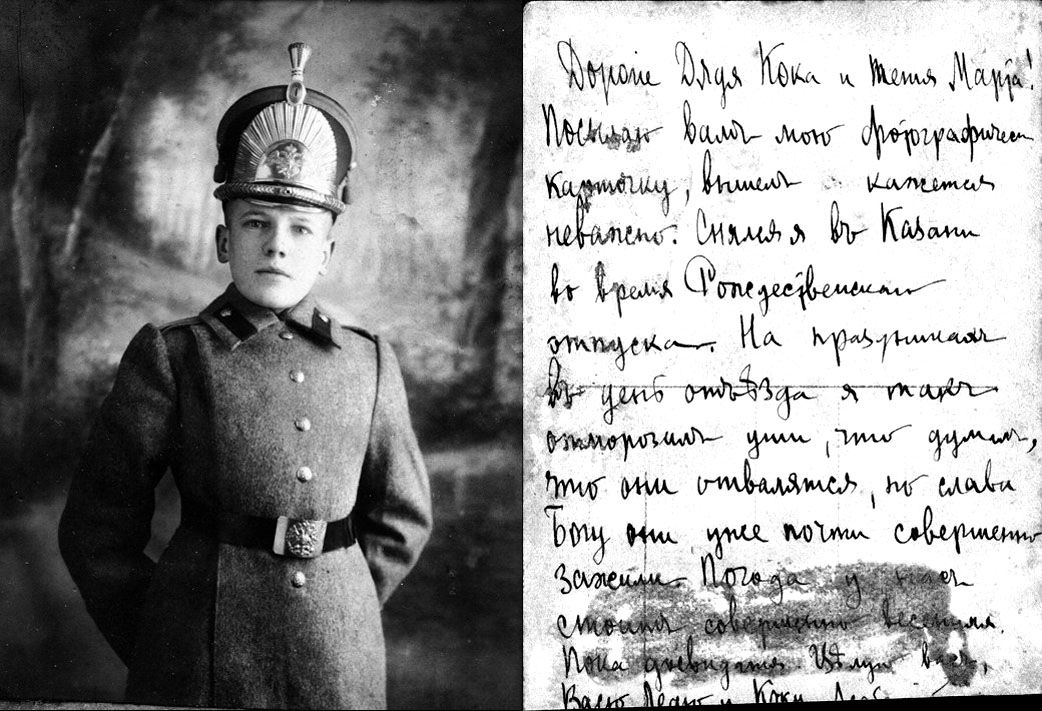 Дорогіе Дядя Кока и тетя Маруя!
Посылаю вамъ мою фотографическ
карточку, вышелъ кажется
неважно. Снялся я въ Казани
во время Рождественскаго
отпуска. На праздникахъ
въ день отъѣзда я такъ
отморозилъ уши, что думалъ,
что они отвалятся, но слава
Богу они уже почти совершенно
зажили. Погода у насъ
стоитъ совершенно весенняя.
Пока досвиданія. Цѣлую васъ,
Васю